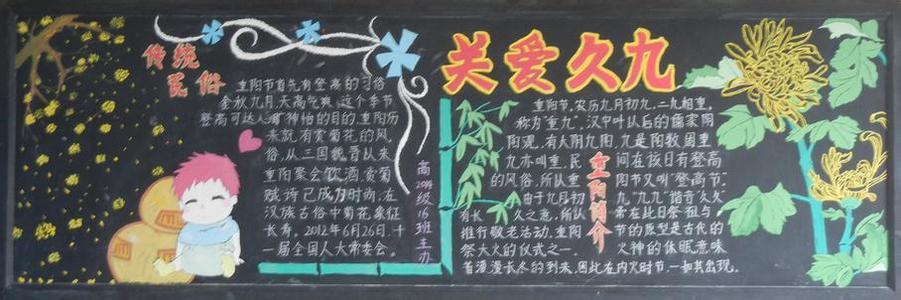 传统
民俗
重阳节首先有登高的习俗
金秋九月,天高气爽,这个季节
登高可达心旷神怡的目的,重阳历
来就有赏菊花的风
俗,从三国魏晋以来
重阳聚会饮酒,赏菊
赋诗已成为时尚。在
汉族古俗中菊花象征
长寿。2012年6月26日,十
一届全国人大常委会。
高2014级16班主办
关爱久九
重阳简介
重阳节,农历九月初九,二九相重,
称为"重九",汉中叶以后的儒家阴
阳观,有六阴九阳,九是阳数,固重
九亦叫重 民间在该日有登高
的风俗,所以重阳节又叫"登高节"。
由于九月初九"九九"谐音"久久"
有长久之意,所以常在此日祭祖与
推行敬老活动,重阳节的原型是古代的
祭大火的仪式之一 火神的休眠意味
着漫漫长冬的到来,因此,在内火时节,一如其出现。